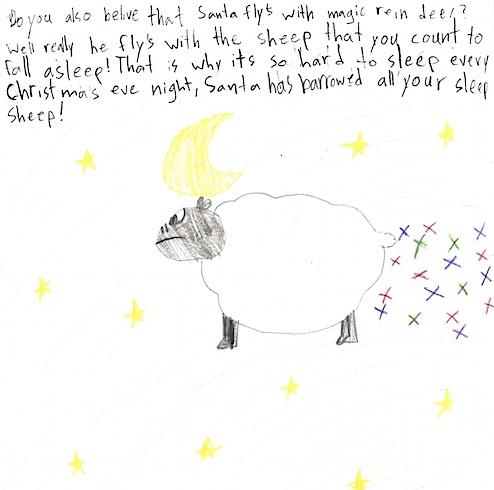 Do you also belive that Santa fly's with magic rein deer?
Well really he fly's with the sheep that you count to
fall asleep! That is why its so hard to sleep every
Christmas eve night, Santa has barrowed all your sleep
sheep!